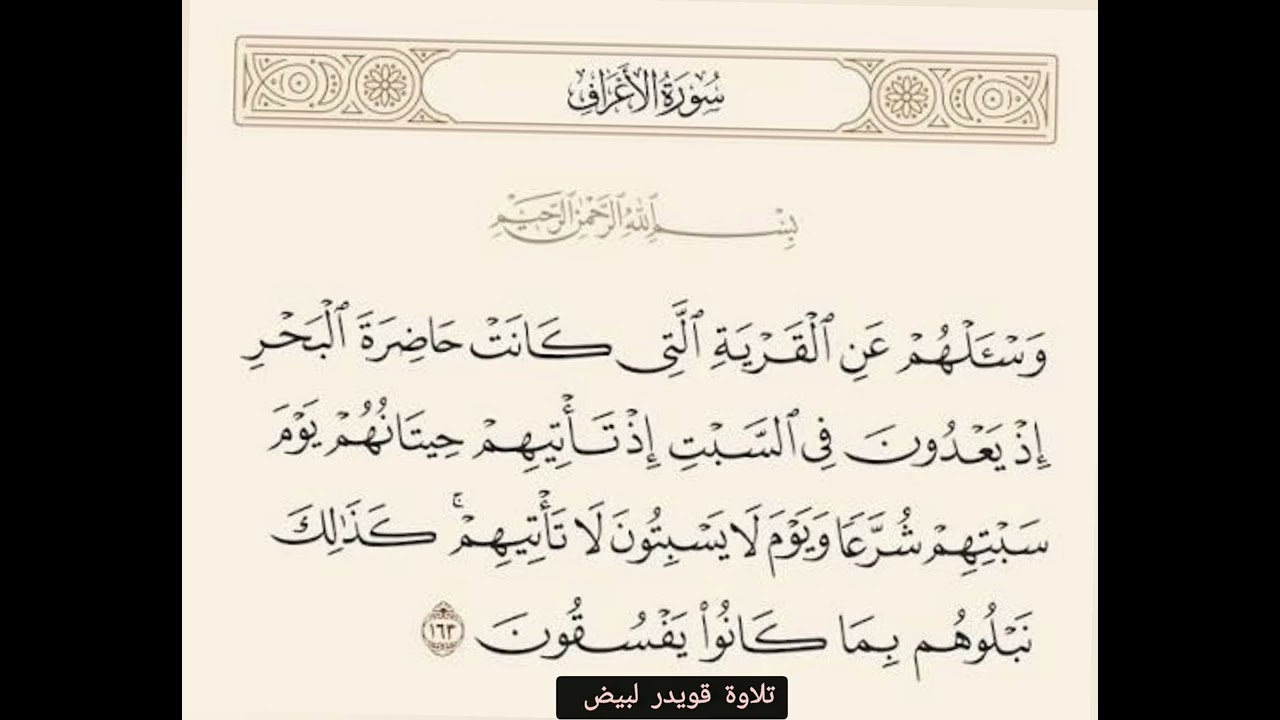 سُورَةُ الأَعْرَافِ
بِسْمِ اللَّهِ الرَّحْمَٰنِ الرَّحِيمِ
وَسْـَٔلْهُمْ عَنِ ٱلْقَرْيَةِ ٱلَّتِى كَانَتْ حَاضِرَةَ ٱلْبَحْرِ
إِذْ يَعْدُونَ فِى ٱلسَّبْتِ إِذْ تَأْتِيهِمْ حِيتَانُهُمْ يَوْمَ
سَبْتِهِمْ شُرَّعًا وَيَوْمَ لَا يَسْبِتُونَ لَا تَأْتِيهِمْ ۚ كَذَٰلِكَ
نَبْلُوهُم بِمَا كَانُوا۟ يَفْسُقُونَ ١٦٣
تلاوة قويدر لبيض